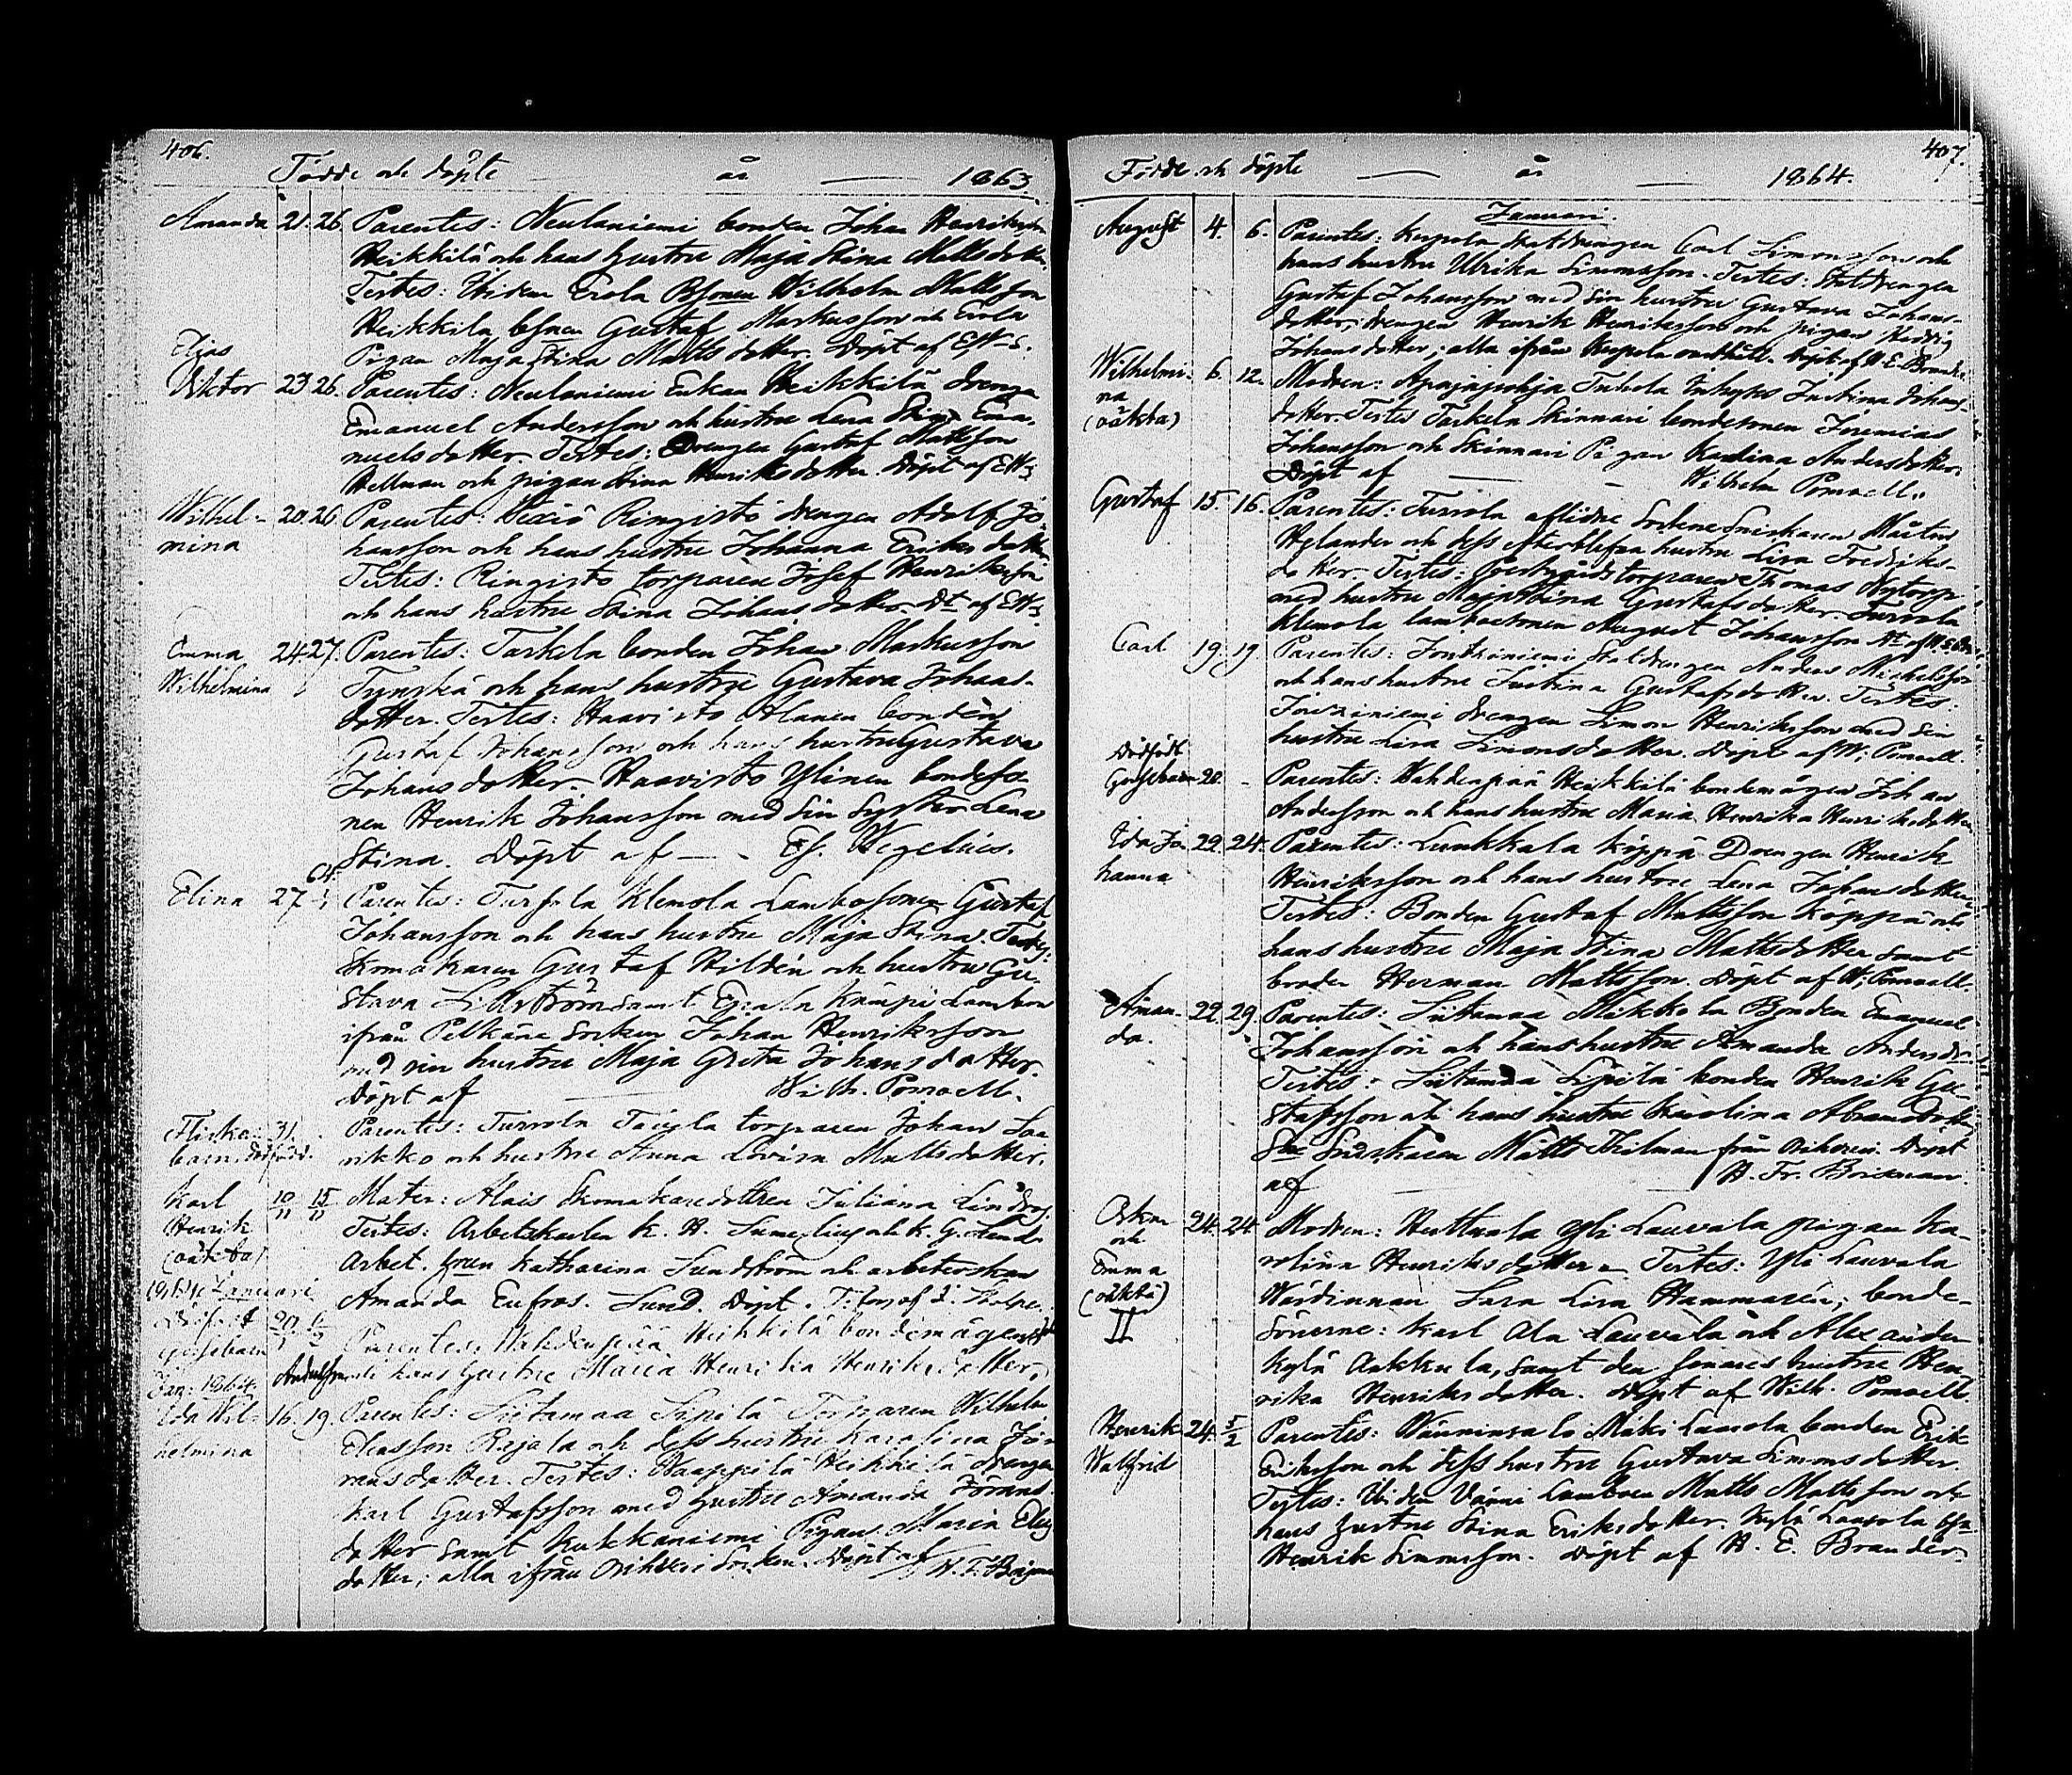 406.
Födde och döpte — år — 1863.
Amanda 21. 26. Parentes: Neulaniemi bonden Johan Henriksson
Heikkilä och hans hustru Maja Stina Mattsdotter.
Testes: Uiden Erola Bsonen Wilhelm Mattsson
Heikkilä bsonen Gustaf Markusson och Erola
Pigan Maja Stina Mattsdotter. Döpt af EW-s.
Elias
Viktor 23. 26. Parentes: Neulaniemi Enkan Heikkilä drengen
Emanuel Andersson och hustru Lena Stina Ema-
nuelsdotter. Testes: Drengen Gustaf Mattsson
Hellman och pigan Stina Henriksdotter. Döpt af EW-s
Wilhel- 20. 26 Parentes: Ringisto drengen Adolf Jo-
mina hansson och hans hustru Johanna Eriksdotter
Testes: Ringisto torparen Josef Henriksson
och hans hustru Stina Johansdotter. Dt af EW-s
Emma 24. 27. Parentes: Taskela bonden Johan Markusson
Wilhelmina Tynskä och hans hustru Gustava Johans-
dotter. Testes: Haavisto Alanen bonden
Gustaf Johansson och hans hustru Gustava
Johansdotter. Haavisto Ylinen bondeso-
nen Henrik Johansson med sin syster Lena
Stina. Döpt af — Ef. Wegelius.
64.
Elina 27 Parentes: Tursola Klemola Lambosonen Gustaf
Johansson och hans hustru Maja Stina. Testes:
Skomakaren Gustaf Hildén och hustru Gu-
stava Lillström samt Kämpi Lambon
ifrån Pelkäne Socken Johan Henriksson
med sin hustru Maja Greta Johansdotter.
Döpt af — Wilh. Pomoell.
Flicko- 31.
barn, dödfödd. Parentes: Tursola torparen Johan Saa
rikko och hustru Anna Lovisa Mattsdotter.
Karl 10/11 15/11 Mater: Alais Skomakaredottren Juliana Lindroos.
Henrik Testes: Arbetskarlen K. H. och K. G. Lund
(oäkta) Arbet. Katharina Sundström och arbeterskan
Amanda Eufros. Lund. Döpt
1864 Januari
Dödfödt 20.
gossebarn Parentes: Wahdenpää Heikkilä bondemågen
Andersson och hans hustru Maria Henrika Henriksdotter.
Jan. 1864.
Ida Wil- 16. 19. Parentes: Siitamaa Sipilä Torparen Wilhelm
helmina Eliasson Rejola och dess hustru Karolina Jö-
ransdotter. Testes: Heikkilä drengen
Karl Gustafsson med hustru Amanda Jörans-
dotter samt Kukkaniemi Pigan Maria Elias
dotter; alla ifrån Orihvesi Socken. Döpt af
407.
Födde och döpte — år — 1864.
Januari.
August 4. 6. Parentes: Kerpola statdrengen Carl Simonsson och
hans hustru Ulrika Simonsson. Testes: Statdrengen
Gustaf Johansson med sin hustru Gustava Johans-
dotter; drengen Henrik Henriksson och pigan Hedvig
Johansdotter; alla ifrån
Wilhelmi- 6. 12. Modren: Inhyses Justina Johans-
na dotter. Testes Taskela Skinnari bondesonen Jeremias
(oäkta) Johansson och Skinnari Pigan Karolina Andersdotter.
Döpt af — Wilhelm Pomoell.
Gustaf 15. 16. Parentes: Tursola aflidne Sockne Snickaren Mårten
Hylander och dess efterblefna hustru Lisa Fredriks-
dotter. Testes: torparen Thomas Nytorp
med hustru Maja Stina Gustafsdotter. Tursola
Klemola lambosonen August Johansson
Carl 19. 19. Parentes: Statdrengen Anders Michelsson
och hans hustru Justina Gustafsdotter. Testes:
drengen Simon Henriksson med sin
hustru Lisa Simonsdotter. Döpt af W. Pomoell.
Dödfödt
Gossebarn 20. - Parentes: Wahdenpää Heikkilä bondemågen Johan
Andersson och hans hustru Maria Henrika Henriksdotter
Ida Jo- 22. 24. Parentes: Lunkkala Köppä Drengen Henrik
hanna Henriksson och hans hustru Lena Johansdotter
Testes: Bonden Gustaf Mattsson Köppä och
hans hustru Maja Stina Mattsdotter samt
broder Herman Mattsson. Döpt af W. Pomoell.
Aman- 22. 29. Parentes: Siitamaa Mikkola Bonden Emanuel
da. Johansson och hans hustru Amanda Andersdr
Testes: Siitamaa Sipilä bonden Henrik Gu-
stafsson och hans hustru Karolina Abramsdotter
Matts Thilman från Orihvesi. Döpt
af — H. Fr. Brisman.
Oskar 24. 24 Modren: Huttuala Yli Lauvala pigan Ka-
och rolina Henriksdotter. Testes: Yli Lauvala
Emma Wärdinnan Sara Lisa Hammarén; bonde-
(oäkta) sönerne: Karl Ala Lauvala och Alexander
II Kylä Aakkula, samt den senares hustru Hen-
rika Henriksdotter. Döpt af Wilh. Pomoell.
Henrik 24. 5/2 Parentes: Wänninsalo Mäki Laurola bonden Erik
Walfrid Eriksson och dess hustru Gustava Simonsdotter.
Testes: Uiden Vänni Lambon Matts Mattsson och
hans hustru Stina Eriksdotter. Kylä Laurola bsn
Henrik Simonsson. Döpt af H. E. Brander.